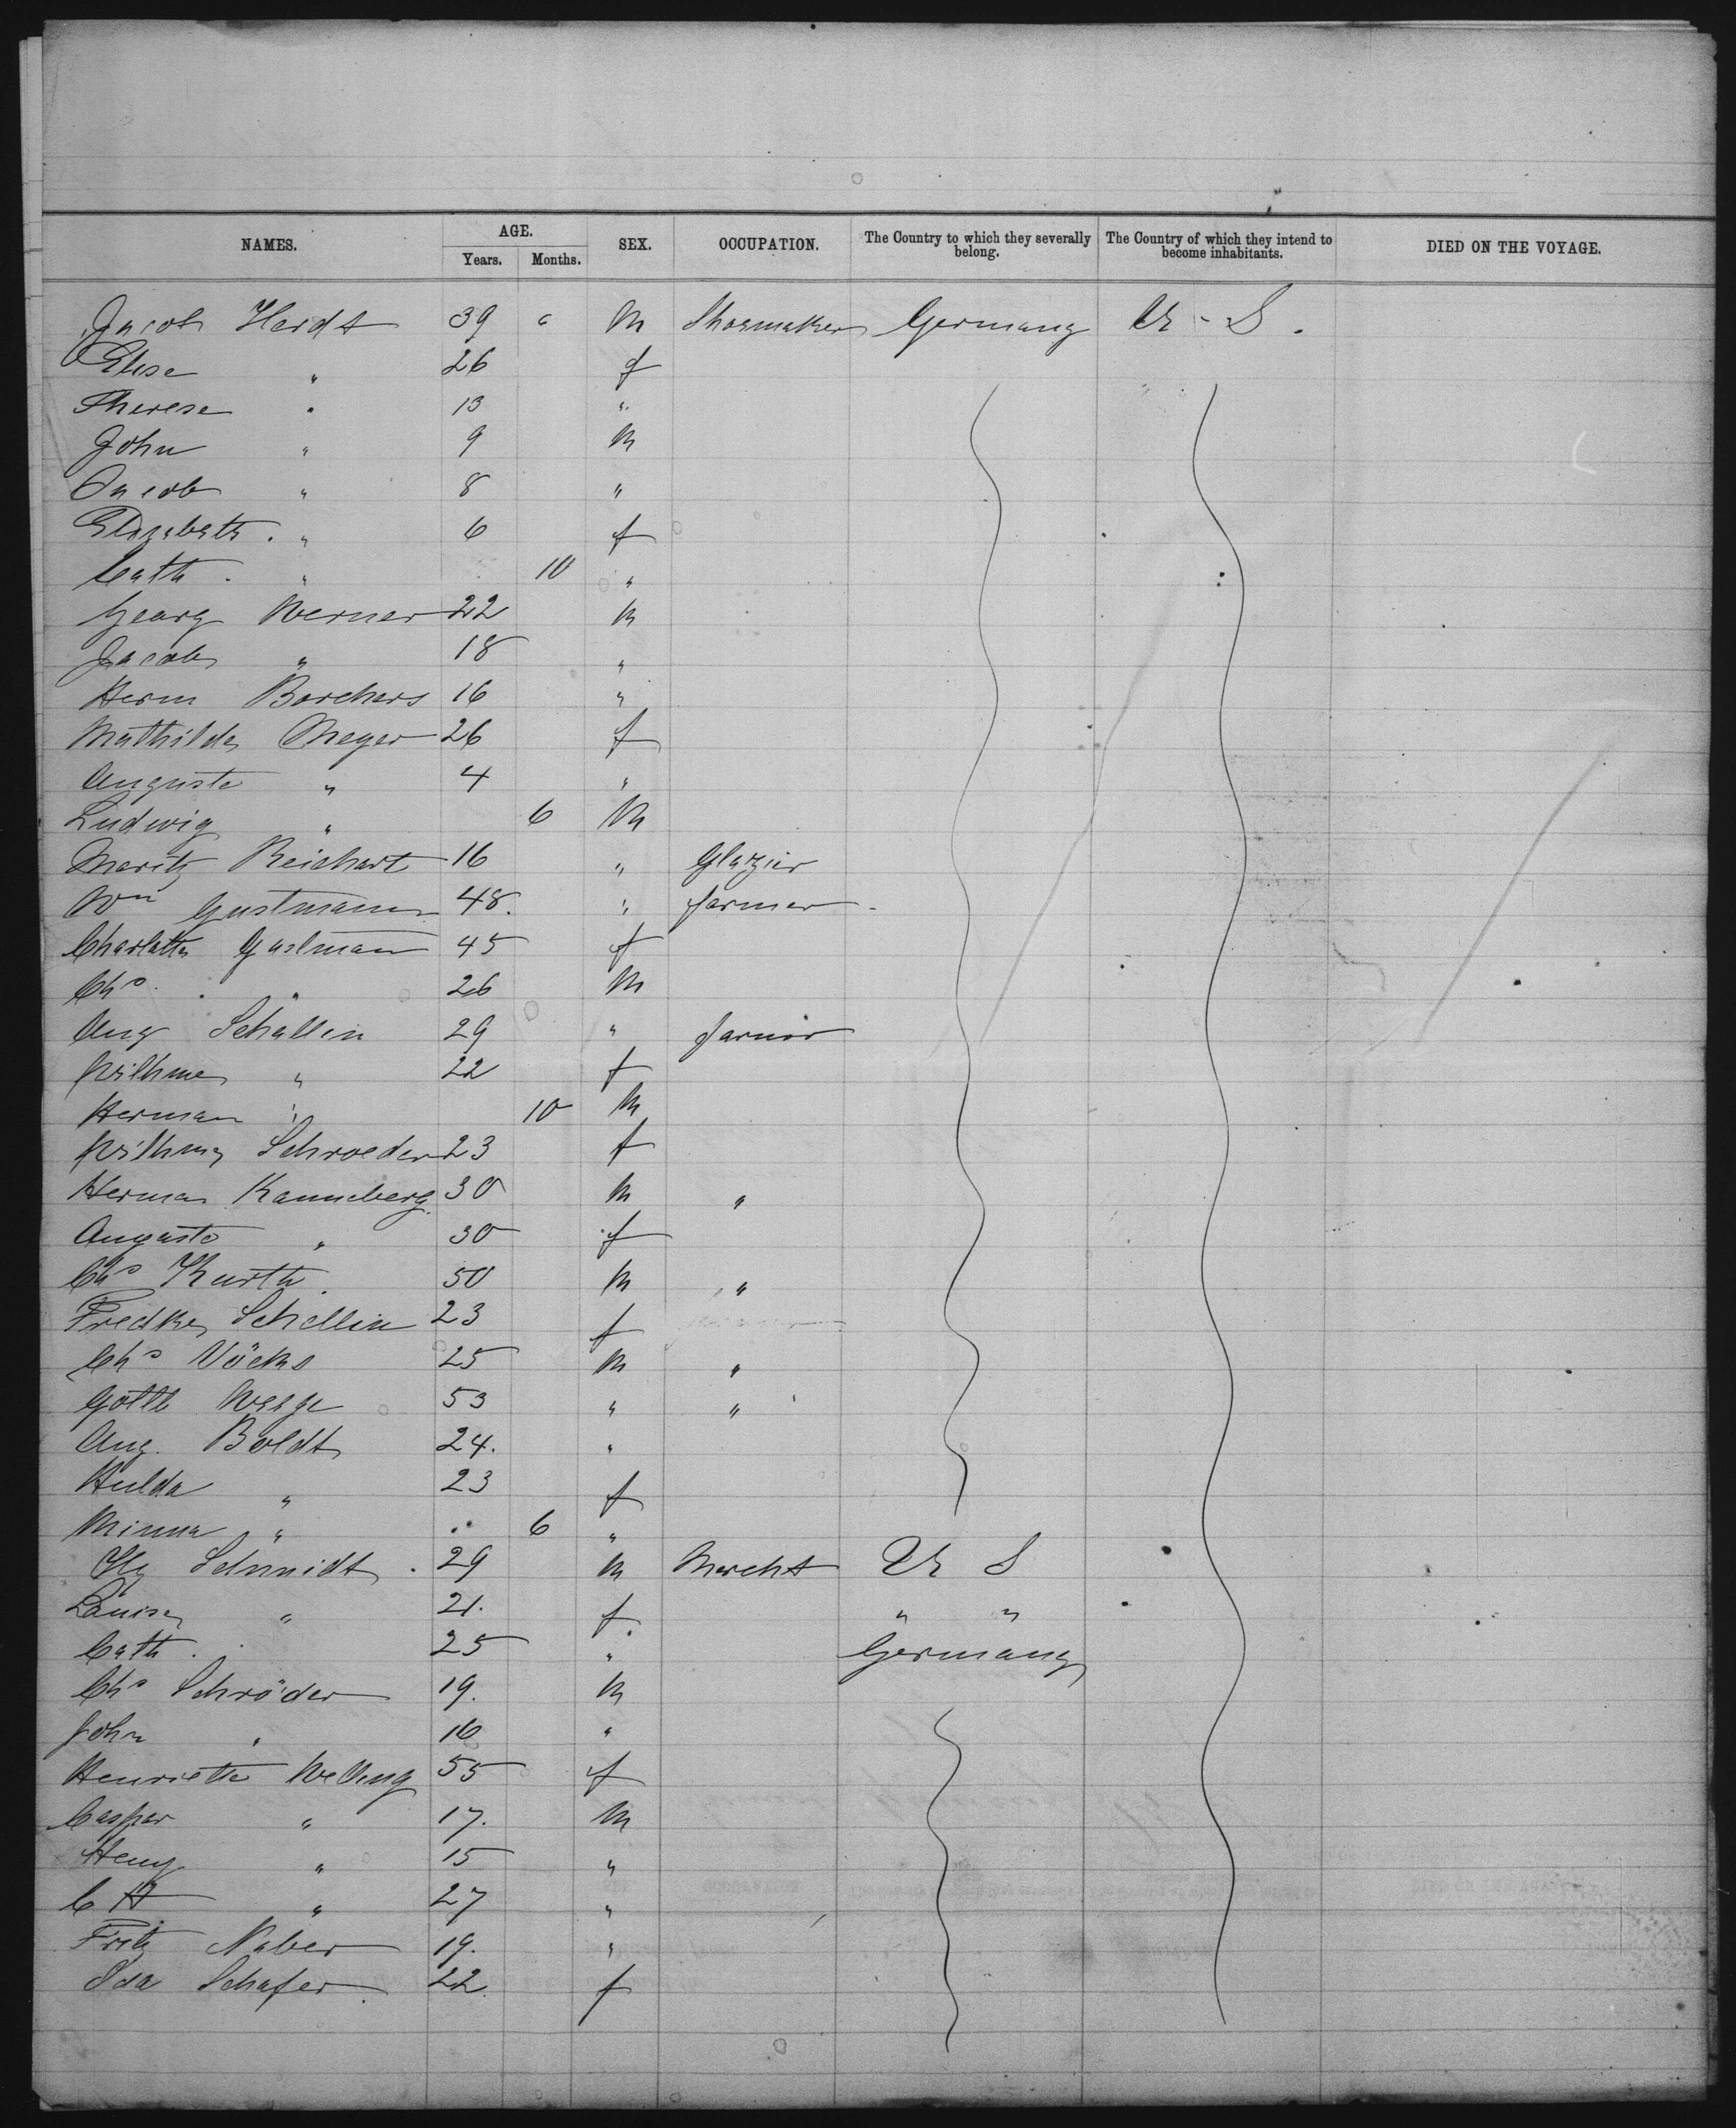 NAMES. AGE. SEX. OCCUPATION. The Country to which they severally belong. The Country of which they intend to become inhabitants. DIED ON THE VOYAGE.
Years. Months.
Jacob Herdt 39 " M Shoemaker Germany U - S.
Elise " 26 f
Therese " 13 "
John " 9 M
Jacob " 8 "
Elizabeth. " 6 f
Cath. " 10 "
Georg Werner 22 M
Jacob " 18 "
Herm Borchers 16 "
Mathilde Meyer 26 f
Auguste " 4 "
Ludwig " 6 M
Moritz Reichart 16 " Glazier
Wm Gustmann 48. " farmer
Charlotte Gustmann 45 f
Chs. " 26 M
Aug Schallin 29 " farmer
Wilhme " 22 f
Herman " 10 M
Wilhme Schroeder 23 f
Herman Kanneberg 30 M "
Auguste " 30 f
Chs Kurth. 50 M "
Fredke Schellin 23 f
Chs Vöcks 25 M "
Gottl 53 " "
Aug. Boldt 24. "
Hulda " 23 f
Minna " 6 "
Hy Schmidt. 29 M Mercht U S
Louise " 21. f. " "
Cath. 25 " Germany
Chs Schröder 19. M
John " 16 "
Henriette Welling 55 f
Caspar " 17. M
Heny " 15 "
C H " 27 "
Fritz Naber 19. "
Ida Schafer. 22. f